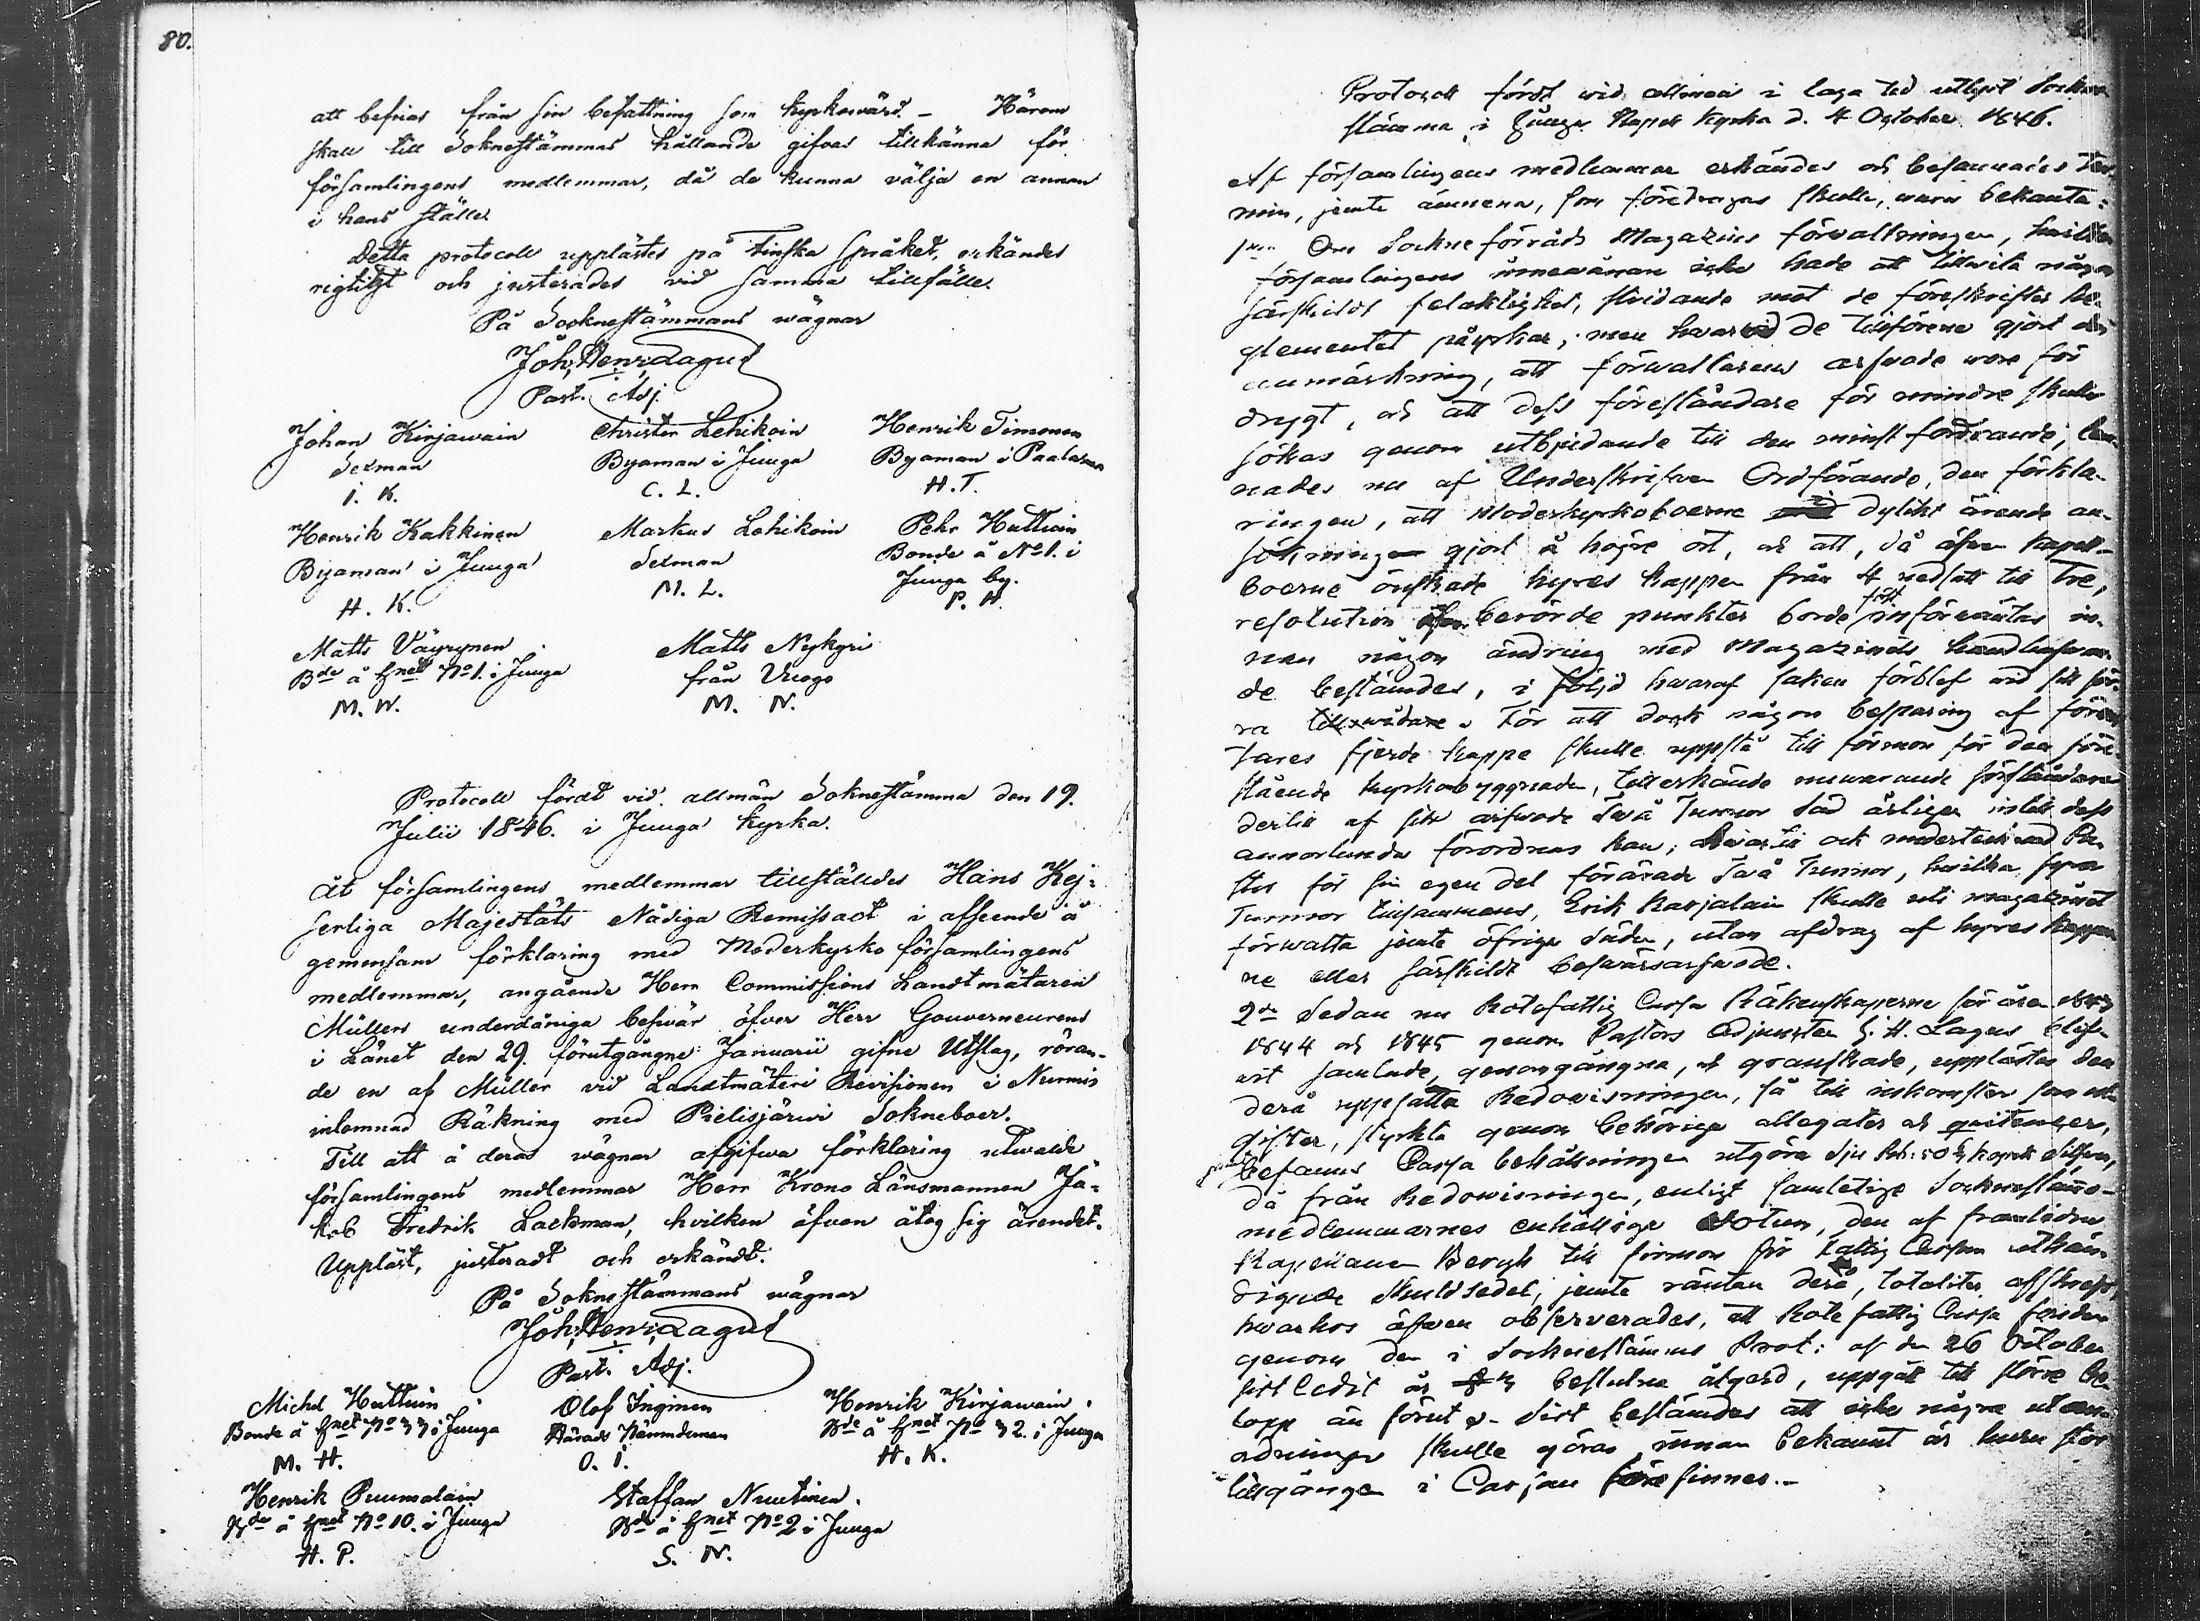 80.
att befrias från sin befattning som kyrkowärd. – Härom
skall till Soknestämmas hållande gifvas tillkänna för
församlingens medlemmar, då de kunna välja en annan
i hans ställe.
Detta protocoll upplästes på Finska språket, erkändes
rigtigt och justerades vid samma tillfälle.
På Socknestämmans wägnar
Joh. Henr. Lagus
Past. Adj.
Johan Kirjawain Christer Lehikoin Henrik Timonen
Sexman Byaman i Juuga Byaman i Paalasma
I. K. C. L. H. T.
Henrik Kakkinen Markus Lehikoin Pehr Huttuin
Byaman i Juuga Sexman Bonde å No 1. i
H. K. M. L. Juuga by.
P. H.
Matts Väyrynen Matts Nykyri
Bde å hnet No 1. i Juuga från Vuogo
M. W. M. N.
Protocoll fördt vid allmän Soknestämma den 19.
Julii 1846. i Juuga kyrka.
Åt församlingens medlemmar tillställdes Hans Kej-
serliga Majestäts Nådiga Remissact i afseende å
gemensam förklaring med Moderkyrko församlingens
medlemmar, angående Herr Commissions Landtmätaren
Müllers underdåniga beswär öfver Herr Gouverneurens
i Länet den 29. förutgångne Januarii gifne Utslag, röran-
de en af Müller vid Landtmäteri Revisionen i Nurmis
inlemnad Räkning med Pielisjärwi Sokneboer.
Till att å deras wägnar afgifwa förklaring utwalde
församlingens medlemmar Herr Krono Länsmannen Ja-
kob Fredrik Lackman, hvilken äfven åtog sig ärendet.
Uppläst, justeradt och erkändt.
På Soknestämmans wägnar
Joh. Henr. Lagus
Past. Adj.
Michel Huttuin Olof Ingman Henrik Kirjawain
Bonde å hnet No i Juuga Härads Nämndeman Bde å hnet No 32. i Juuga
M. H. O. I. H. K.
Henrik Puumalain Staffan Nuutinen
Bde å hnet No 10. i Juuga Bde å hnet No 2 i Juuga
H. P. S. N.
Protocoll fördt vid allmän i laga tid utlyst Sockne
stämma i Juuga Kapell kyrka d. 4 October 1846.
Af församlingens medlemmar erkändes och besannades Ter-
min, jemte ämnena, som föredragas skulle, wara bekanta:
1mo Om Sockneförråds Magazins förvaltningen, hvilken
församlingens innewånare icke hade att tillwita någon
särskildt felaktighet, stridande mot de föreskrifter Re-
glementet påyrkar, men hwarvid de tillförene gjort den
anmärkning, att förwaltarens arfwode wore för
drygt, och att dess föreståndare för mindre skulle
sökas genom utbjudande till den minst fordrande, lem-
nades nu af Underskrifven Ordförande, den förkla-
ringen, att Moderkyrkoboerne i dylikt ärende an-
sökningen gjort å högre ort, och att, då äfven kapell-
boerne önskade hyres kappen från 4 nedsatt till Tre,
resolution öfver berörde punkter borde först införwäntas in-
nan någon ändring med Magazinets handhafwan-
de bestämdes, i följd hwaraf saken förblef wid sitt för-
ra tillswidare. För att dock någon besparing af
fjerde kappe skulle uppstå till förmon för den före-
stående kyrkobyggnaden, tillerkände nuwarande föreståndaren
af sitt arfwode Två Tunnor Säd årligen intill dess
annorlunda förordnas kan, och undertecknad Pa-
stor för sin egen del förärade Två Tunnor, hwilka fyra
Tunnor tillsammans, Erik Karjalain skulle uti magazinet
förwalta jemte öfrige Säden, utan afdrag af hyres kappar-
ne eller särskildt beswärsarfwode.
2do Sedan nu Rotefattig Cassa Räkenskaperne för åren 1843
1844 och 1845 genom Pastors Adjuncten J. H. Lagus blif-
vit samlade, genomgångna, och granskade, upplästes den
derå uppsatta Redowisningen, så till inkomster som ut-
gifter, styrkta genom behöriga allegater och quitencer,
befanns Cassa behållningen utgöra Sju Rub: 50 kopek Silfver,
då från Redowisningen, enligt samtelige Socknestäms-
medlemmarnes enhällige Votum, den af framlidne
Kapellanen Bergh till förmon för Fattig Cassan uthän-
digade Skuldsedel, jemte räntan derå, totaliter afskrefs,
hwarhos äfwen observerades, att Rote fattig Cassa fonden
genom den i Socknestämmans Prot: af den 26 October
sistledit år beslutne åtgerd, uppgått till större be-
lopp än förut. – Sist bestämdes att icke någre utan-
ordningar skulle göras innan bekannt är huru stor
tillgången i Cassan förefinnes. –